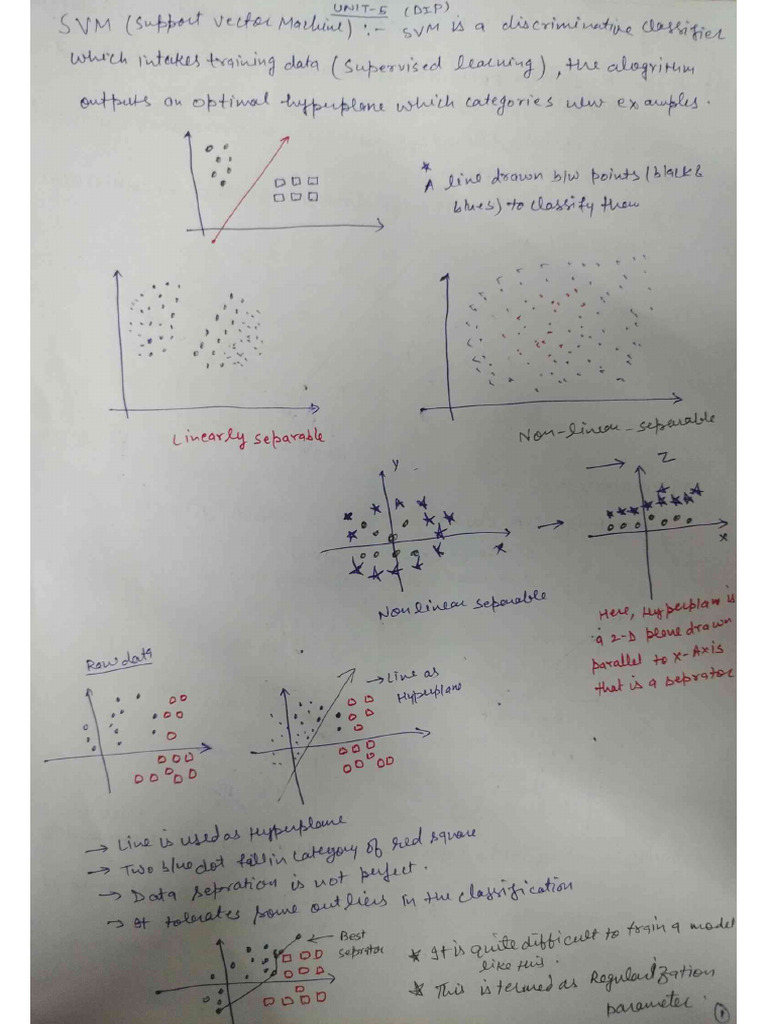 UNIT-5 (DIP)
SVM (Support Vector Machine) :- SVM is a discriminative classifier
which intakes training data (Supervised learning), the alogrithm
outputs an optimal hyperplane which categories new examples.
* A line drawn b/w points (black &
blues) to classify them
Linearly separable
Non-linear-separable
Y
X
Z
X
Non linear separable
Here, Hyperplane is
a 2-D plane drawn
parallel to X-Axis
that is a seprator
Raw data
→ Line as
Hyperplane
→ Line is used as Hyperplane
→ Two blue dot fall in category of red square
→ Data sepration is not perfect.
→ It tolerates some outliers in the classification
Best
seprator
* It is quite difficult to train a model
like this.
* This is termed as Regularization
parameter.
1